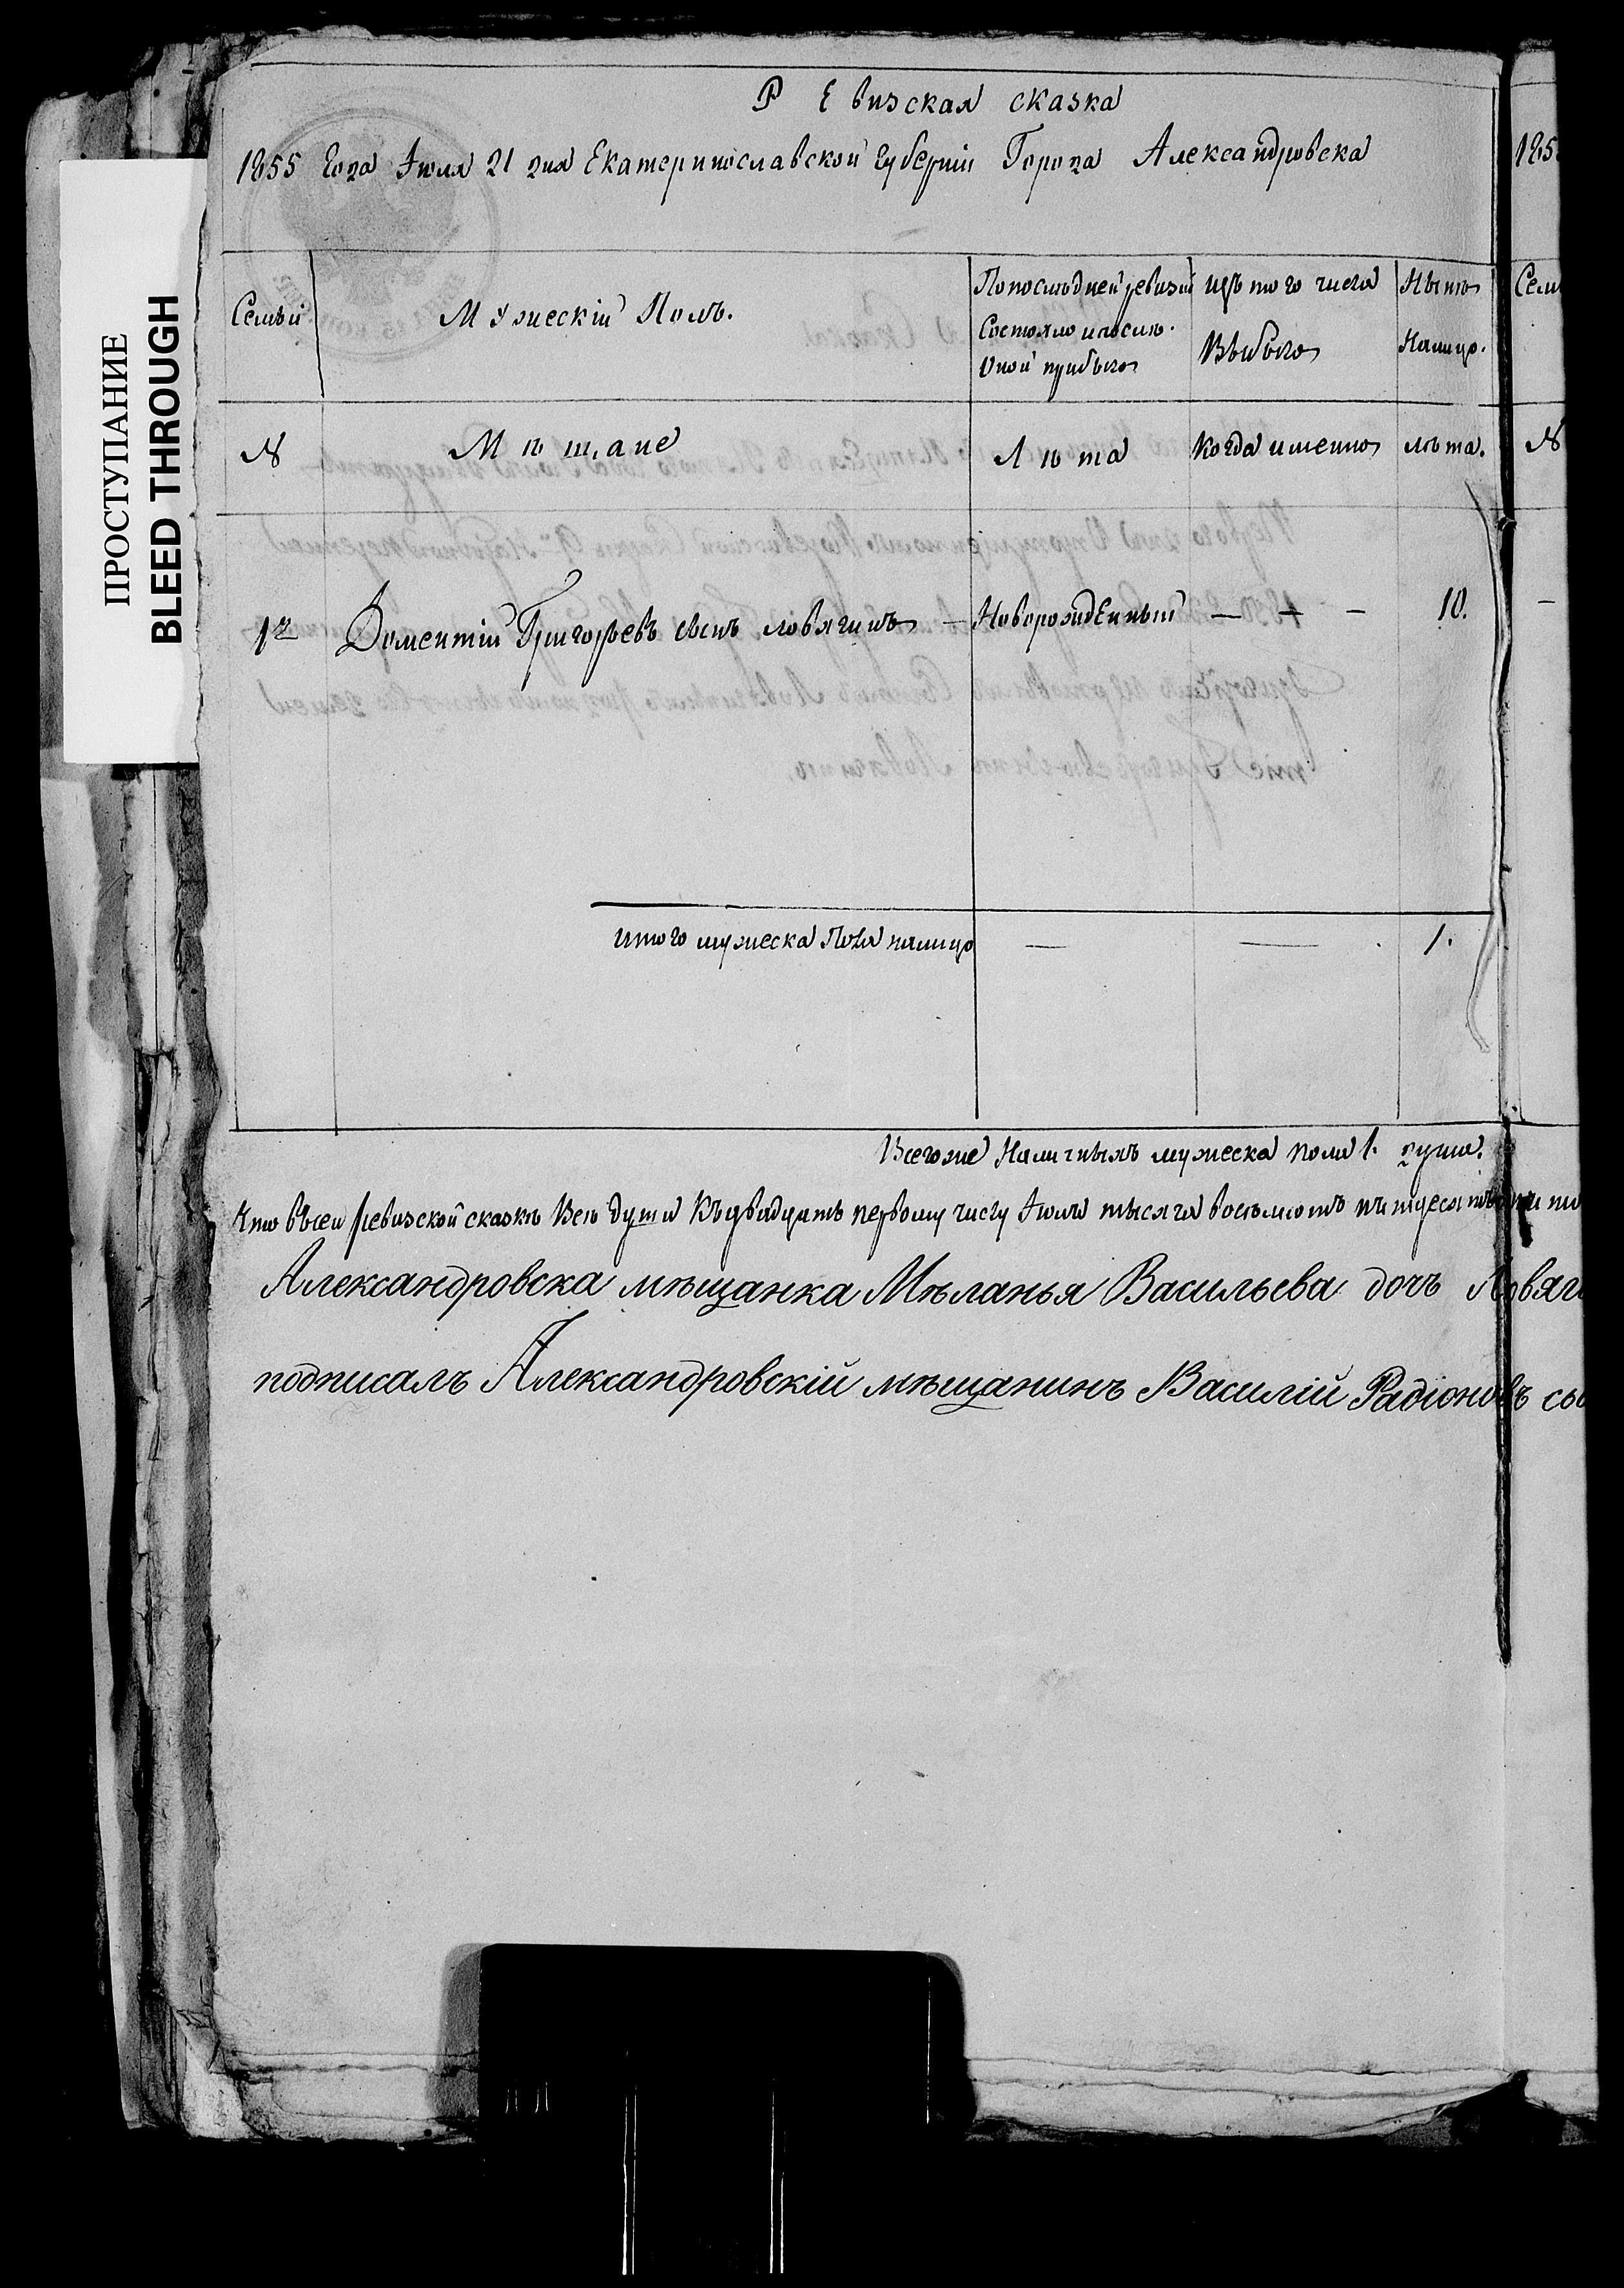 ПРОСТУПАНИЕ
BLEED THROUGH
РЕвизская сказка
1855 Года Июля 21 дня Екатеринославской Губерніи Города Александровска
185
Семьи
Мужескій Полъ.
По последней ревизіи
Состояло и после
Оной прибыло
Изъ того числа
Выбыло
Ныне
Налицо.
Сем
№
Мѣщане
Лѣта
Когда именно
лѣта.
№
1й
Доментій Григорьевъ сынъ Ловягинъ —
Новорожденный
— + —
10.
итого мужеска Пола налицо
—
—
1.
Всегоже Наличныхъ мужеска пола 1. душа.
Что въсей ревизской сказкѣ Все души Къ двадцать первому числу Июля тысяча восемьсотъ пятдесятъ
Александровска мѣщанка Мѣланья Васильева дочъ Ловяг
подписалъ Александровскій мѣщанинъ Василій Радіоновъ сы